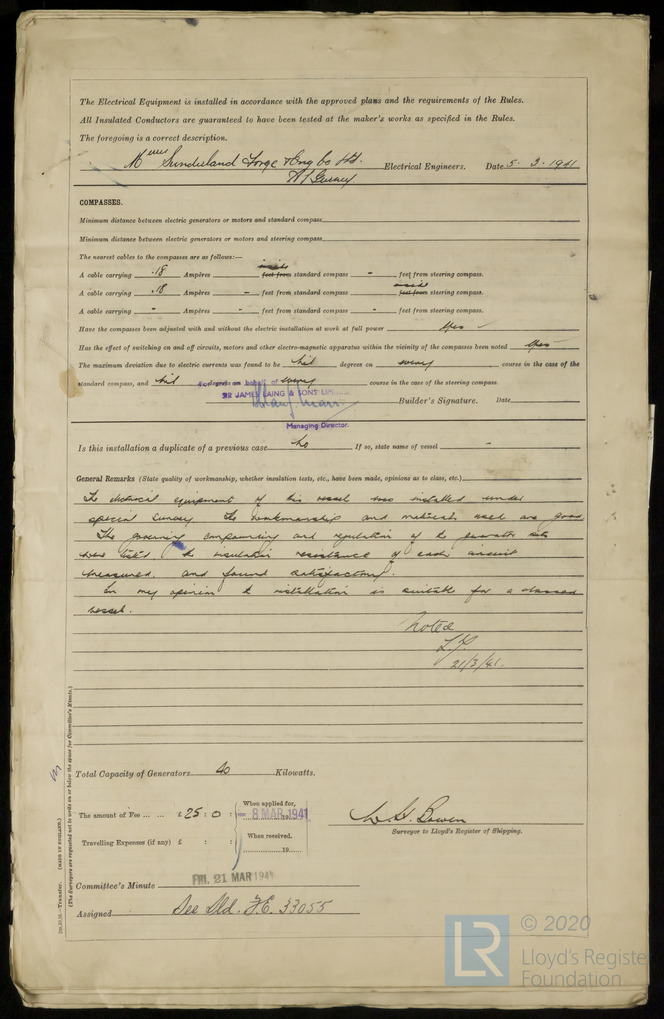 The Electrical Equipment is installed in accordance with the approved plans and the requirements of the Rules.
All Insulated Conductors are guaranteed to have been tested at the maker's works as specified in the Rules.
The foregoing is a correct description.
Messrs Sunderland Forge & Eng Co Ltd. Electrical Engineers. Date 5-3-1941
COMPASSES.
Minimum distance between electric generators or motors and standard compass
Minimum distance between electric generators or motors and steering compass
The nearest cables to the compasses are as follows:—
inside
A cable carrying .18 Ampères feet from standard compass - feet from steering compass.
inside
A cable carrying .18 Ampères - feet from standard compass feet from steering compass.
A cable carrying - Ampères - feet from standard compass - feet from steering compass.
Have the compasses been adjusted with and without the electric installation at work at full power Yes
Has the effect of switching on and off circuits, motors and other electro-magnetic apparatus within the vicinity of the compasses been noted Yes
The maximum deviation due to electric currents was found to be Nil degrees on every course in the case of the
standard compass, and Nil degrees on every course in the case of the steering compass.
For and on behalf of
SIR JAMES LAING & SONS LIMITED
Builder's Signature. Date
Managing Director.
Is this installation a duplicate of a previous case No If so, state name of vessel -
General Remarks (State quality of workmanship, whether insulation tests, etc., have been made, opinions as to class, etc.)
The electrical equipment of this vessel was installed under
special survey. The workmanship and materials used are good
The governing compounding and regulation of the generator sets
were tested the insulation resistance of each circuit
measured and found satisfactory.
In my opinion the installation is suitable for a classed
vessel.
Noted
21/3/41.
Total Capacity of Generators 40 Kilowatts.
The amount of Fee ... ... £25 : 0 :
When applied for,
- 8 MAR 1941
19
Travelling Expenses (if any) £ : :
When received,
19
W. G. Bowen
Surveyor to Lloyd's Register of Shipping.
Committee's Minute FRI. 21 MAR 1941
Assigned See Sld. F.E. 33055
(MADE IN ENGLAND.)
(The Surveyors are requested not to write on or below the space for Committee's Minute.)
© 2020
LR
Lloyd's Register
Foundation